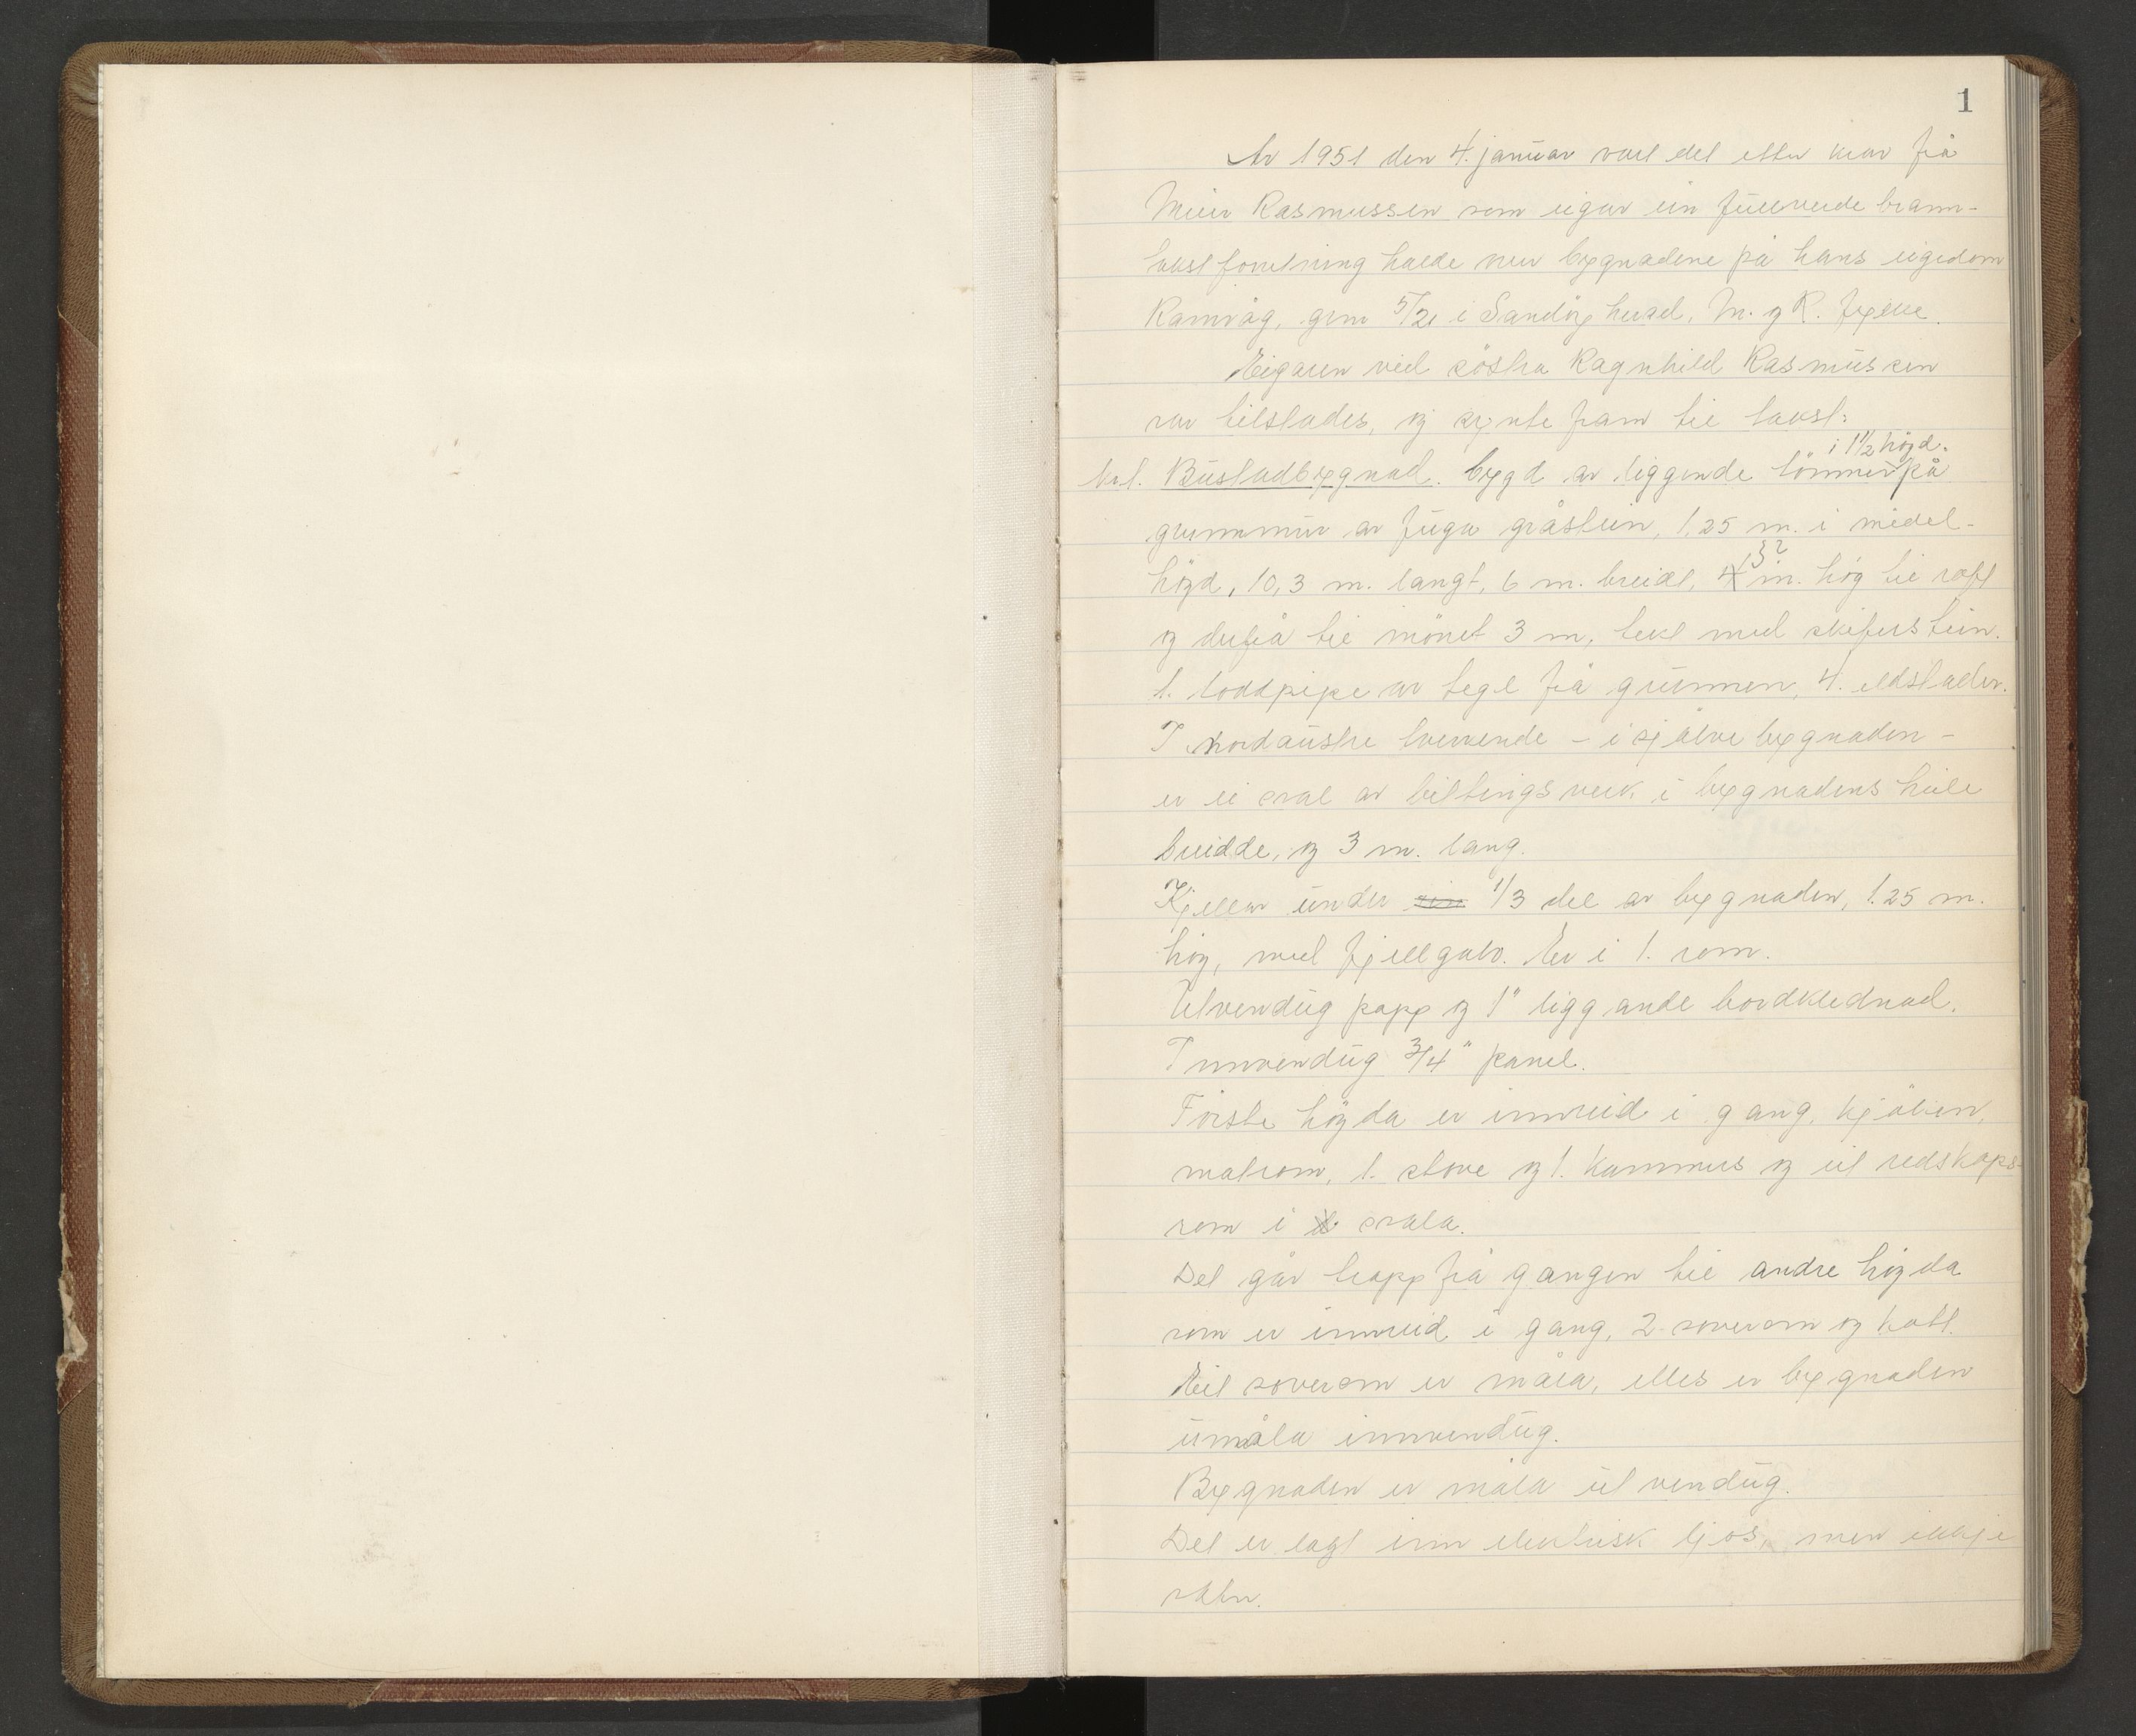 1
År 1951 den 4. januar vart det etter krav frå
Rasmussen som eigar ein fullverde brann-
takst forretning halde over bygnadene på hans eigedom
Ramvåg, grnr 5/21 i Sandøy herad, M. og R. fylke.
Eigaren ved söstra Ragnhild Rasmussen
var tilstades, og synte fram til takst:
i 1 1/2 högd.
bnl. Bustadbygnad. bygd av liggende tömmer på
grunnmur av fuga gråstein, 1,25 m. i medel-
32
högd, 10,3 m. langt, 6 m. breidt, 4 m. høg til raft
og derfrå til mönet 3 m, tekt med skiferstein.
1. loddpipe av tegl frå grunnen, 4. eldstader.
I nordaustre tverrende - i sjølve bygnaden -
er ei sval av biltingsverk i bygnadens heile
breidde, og 3 m. lang.
Kjellar under ein 1/3 del av bygnaden, 1.25 m.
høg, med fjellgolv. Er i 1. rom.
Utvendug papp og 1" liggande bordklednad.
Innvendug 3/4" panel.
Første høgda er innreid i gang, kjøken,
matrom, 1. stove og 1. kammers og eit redskaps-
rom i svala.
Det går trapp frå gangen til andre høgda
som er innreid i gang, 2 soverom og kott.
Eit soverom er måla, elles er bygnaden
umåla innvendug.
Bygnaden er måla utvendug.
Det er lagt inn elektrisk ljos, men ikkje
vatn.